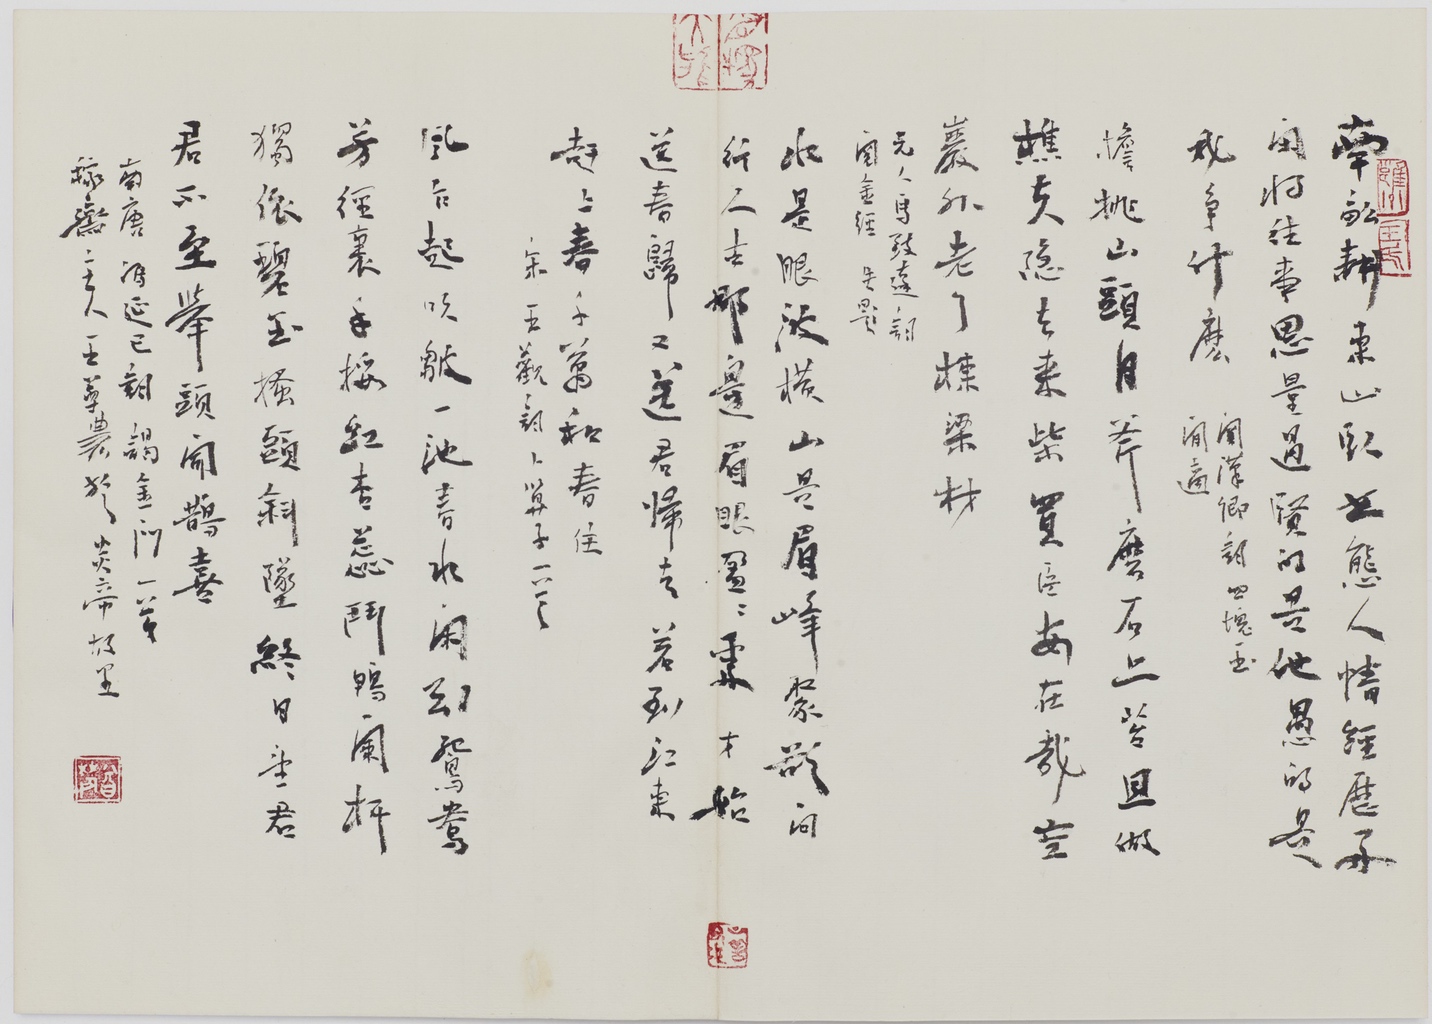 南畝耕東山臥世態人情經歷多
閑將往事思量過賢的是他愚的是
我爭什麽
關漢卿詞四塊玉
閒適
擔挑山頭月斧磨石上苔且做
樵夫隱去來柴買臣安在哉空
巖外老了棟梁材
元人馬致遠詞
金經失題
水是眼波橫山是眉峰聚欲問
行人去那邊眉眼盈〻處才始
送春歸又送君歸去若到江東
趕上春千萬和春住
宋王觀詞卜算子一首
風乍起吹皺一池春水閑引鴛鴦
芳徑裏手挼紅杏蕊鬥鴨闌杆
獨倚碧玉搔頭斜墜終日望君
君不至舉頭聞鵲喜
南唐馮延巳詞謁金門一首
稼齋主人王農於炎帝故里